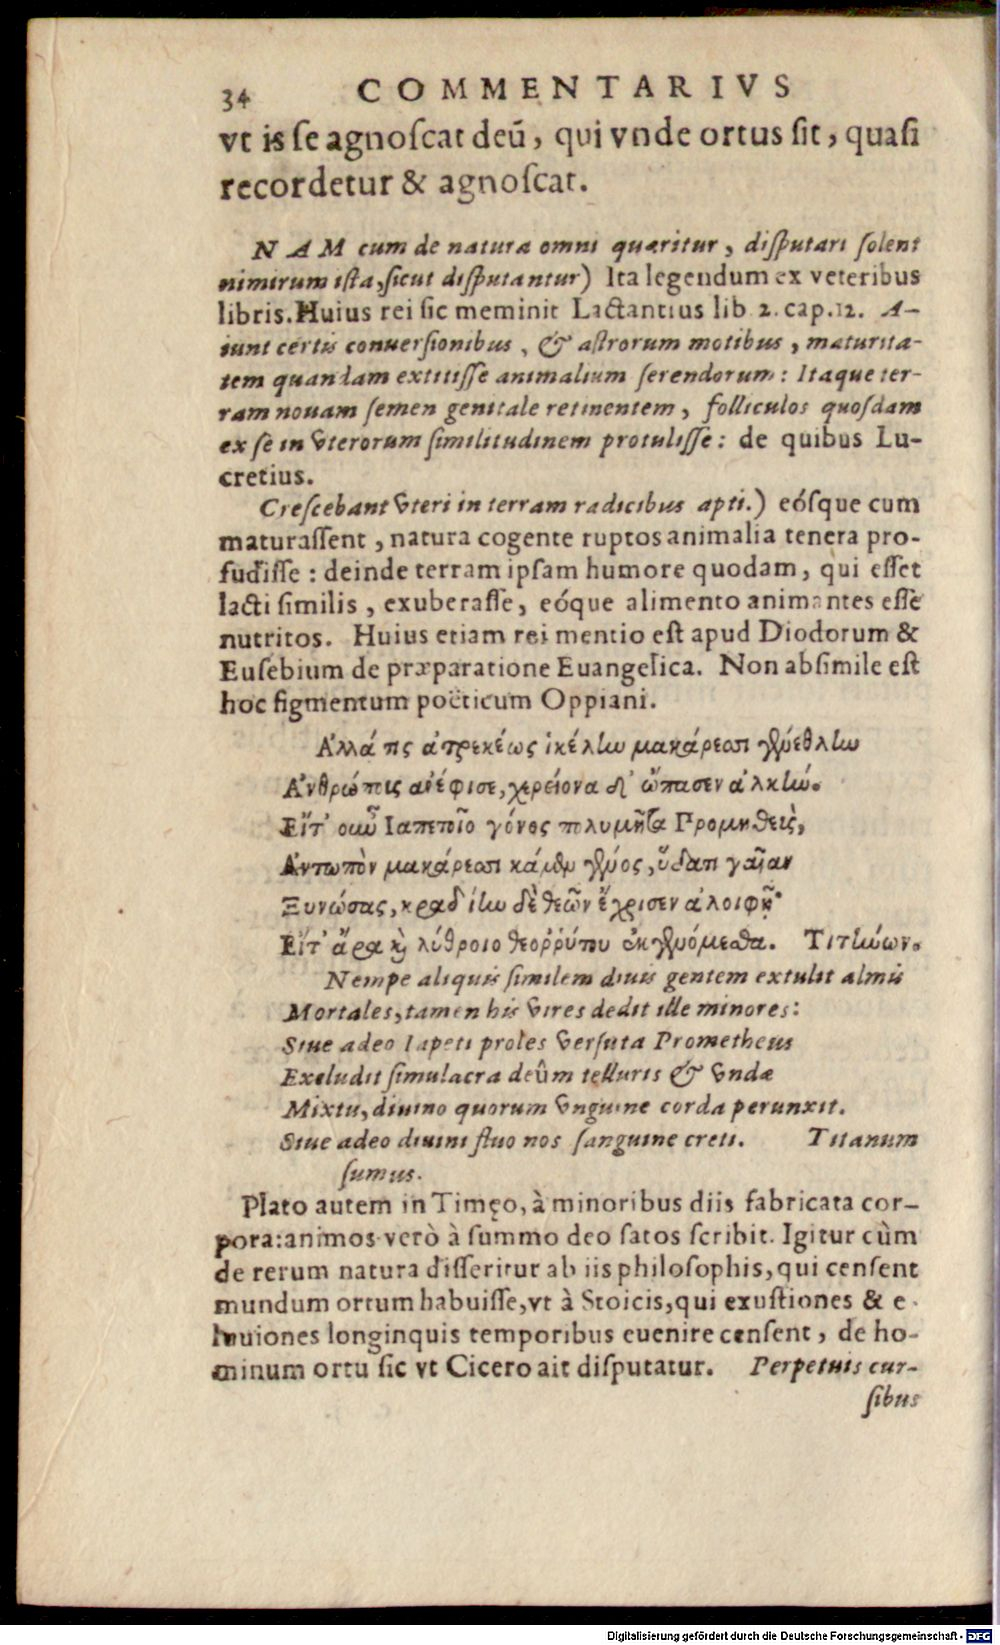 34 COMMENTARIVS
vt is se agnoscat deū, qui vnde ortus sit, quasi
recordetur & agnoscat.
NAM cum de natura omni quæritur, disputari solent
nimirum ista, sicut disputantur) Ita legendum ex veteribus
libris. Huius rei sic meminit Lactantius lib 2. cap. 12. A-
iunt certis conuersionibus, & astrorum motibus, maturita-
tem quandam extitisse animalium serendorum: Itaque ter-
ram nouam semen genitale retinentem, folliculos quosdam
ex se in vterorum similitudinem protulisse: de quibus Lu-
cretius.
Crescebant vteri in terram radicibus apti.) eósque cum
maturassent, natura cogente ruptos animalia tenera pro-
fudisse: deinde terram ipsam humore quodam, qui esset
lacti similis, exuberasse, eóque alimento animantes esse
nutritos. Huius etiam rei mentio est apud Diodorum &
Eusebium de præparatione Euangelica. Non absimile est
hoc figmentum poëticum Oppiani.
Ἀλλά τις ἀτρεκέως ἰκέλην μακάρεσσι γενέθλην
Ἀνθρώποις ἀνέφυσε, χερείονα δ' ὤπασεν ἀλκήν.
Εἴτ' οὖν Ἰαπετοῖο γόνος πολυμῆτα Προμηθεὺς,
Ἀντωπὸν μακάρεσσι κάμεν γένος, ὕδατι γαῖαν
Ξυνώσας, κραδίην δὲ θεῶν ἔχρισεν ἀλοιφῇ·
Εἴτ' ἄρα καὶ λύθροιο θεοῤῥύτου ἐκγενόμεσθα. Τιτήνων.
Nempe aliquis similem diuis gentem extulit almis
Mortales, tamen his vires dedit ille minores:
Siue adeo Iapeti proles versuta Prometheus
Excludit simulacra deûm telluris & vndæ
Mixtu, diuino quorum vnguine corda perunxit.
Siue adeo diuini fluo nos sanguine creti. Titanum
sumus.
Plato autem in Timęo, à minoribus diis fabricata cor-
pora: animos verò à summo deo satos scribit. Igitur cùm
de rerum natura disseritur ab iis philosophis, qui censent
mundum ortum habuisse, vt à Stoicis, qui exustiones & e-
luuiones longinquis temporibus euenire censent, de ho-
minum ortu sic vt Cicero ait disputatur. Perpetuis cur-
sibus
Digitalisierung gefördert durch die Deutsche Forschungsgemeinschaft - DFG